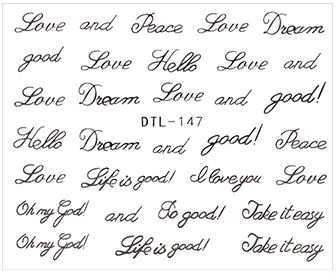 Love and Peace Love Dream
good Love Hello Love and
Love Dream Love and good!
DTL-147
Hello Dream and good! Peace
Love Life is good! I love you Love
Oh my God! and So good! Take it easy
Oh my God! Life is good! Take it easy